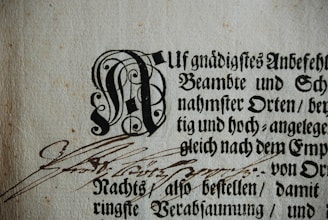 Auf gnädigstes Anbefehl
Beambte und Sch
nahmster Orten / bey
tig und hoch-angelege
gleich nach dem Emp
von Or
Nachts / also bestellen / damit
ringste Verabsaumung / und